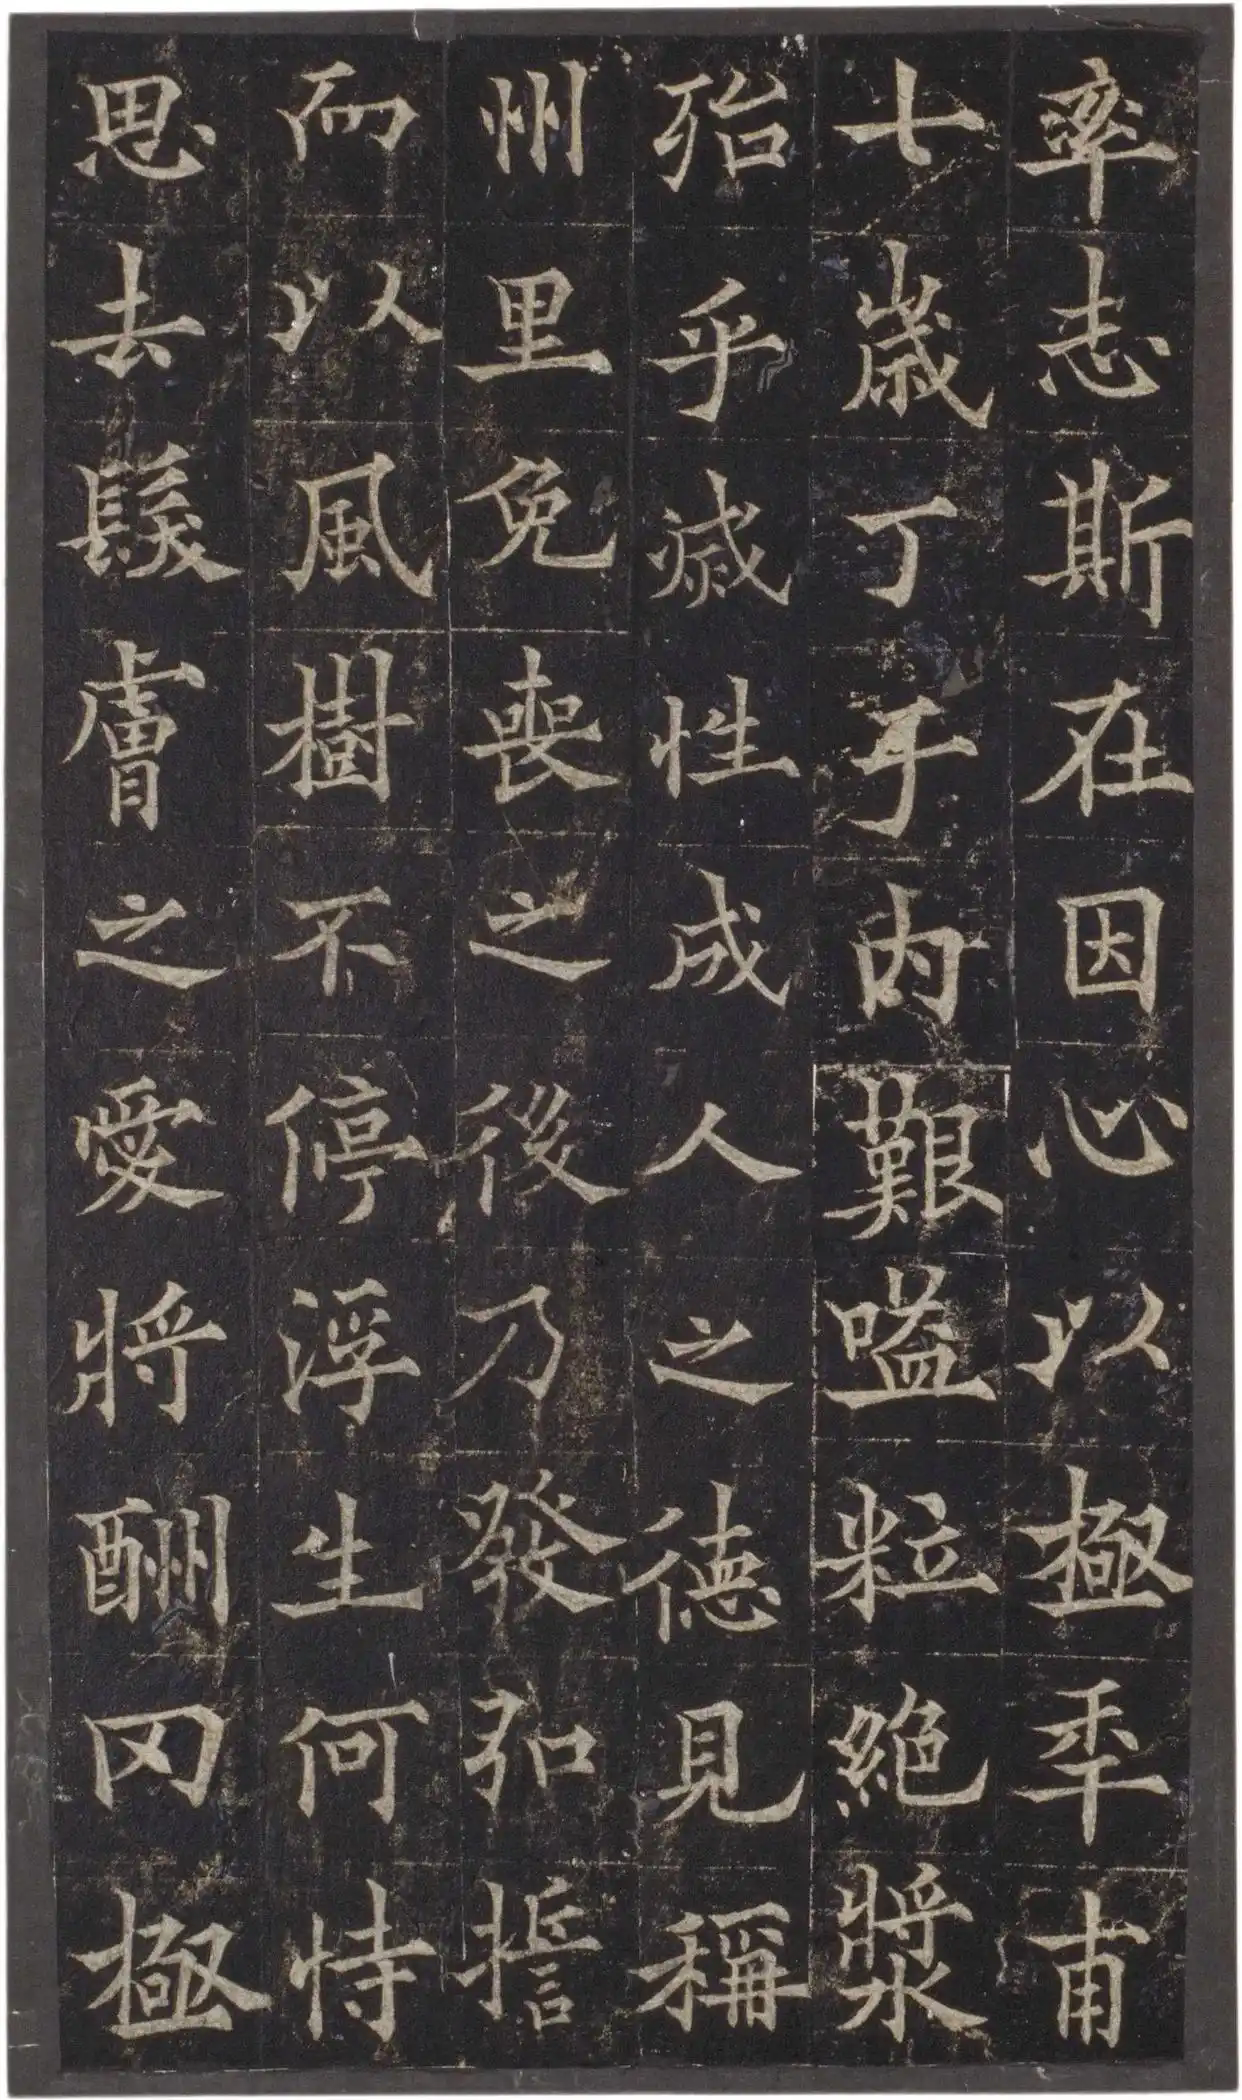 率志斯在因心以極秊甫
七歳丁于内艱嗑粒絶漿
殆乎滅性成人之德見稱
州里免喪之後乃發弘誓
而以風樹不停浮生何恃
思去髮膚之愛將酬冈極